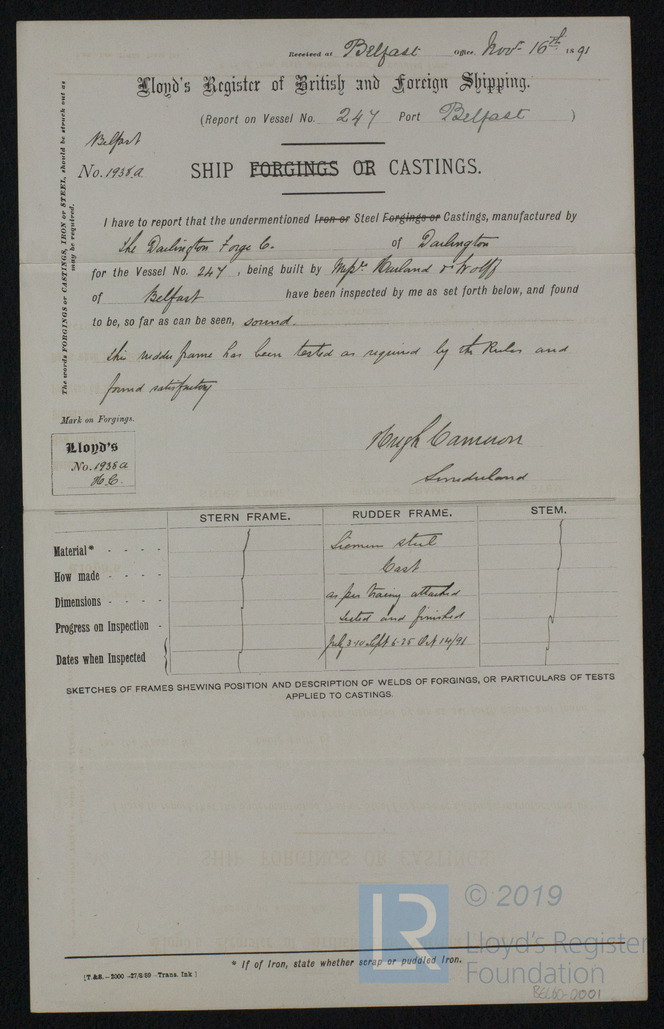 Received at Belfast Office, Novr 16th 1891
Lloyd's Register of British and Foreign Shipping.
(Report on Vessel No. 247 Port Belfast )
Belfast
No. 1938a
SHIP FORGINGS OR CASTINGS.
The words FORGINGS or CASTINGS, IRON or STEEL, should be struck out as
may be required.
I have to report that the undermentioned Iron or Steel Forgings or Castings, manufactured by
the Darlington Forge Co. of Darlington
for the Vessel No. 247, being built by Messrs Harland & Wolff
of Belfast have been inspected by me as set forth below, and found
to be, so far as can be seen, sound.
This rudder frame has been tested as required by the Rules and
found satisfactory
Mark on Forgings.
Lloyd's
No. 1938a
H.C.
Hugh Cameron
Sunderland
STERN FRAME. RUDDER FRAME. STEM.
Material* - - - - Siemens steel
How made - - - - Cast
Dimensions - - - - as per tracing attached
Progress on Inspection - tested and finished
Dates when Inspected July 3·10 Sept 6·25 Oct 14/91
SKETCHES OF FRAMES SHEWING POSITION AND DESCRIPTION OF WELDS OF FORGINGS, OR PARTICULARS OF TESTS
APPLIED TO CASTINGS.
* If of Iron, state whether scrap or puddled Iron.
[T.&S.—2000 -27/8/90 -Trans. Ink]
LR
© 2019
Lloyd's Register
Foundation
BEL60-0001